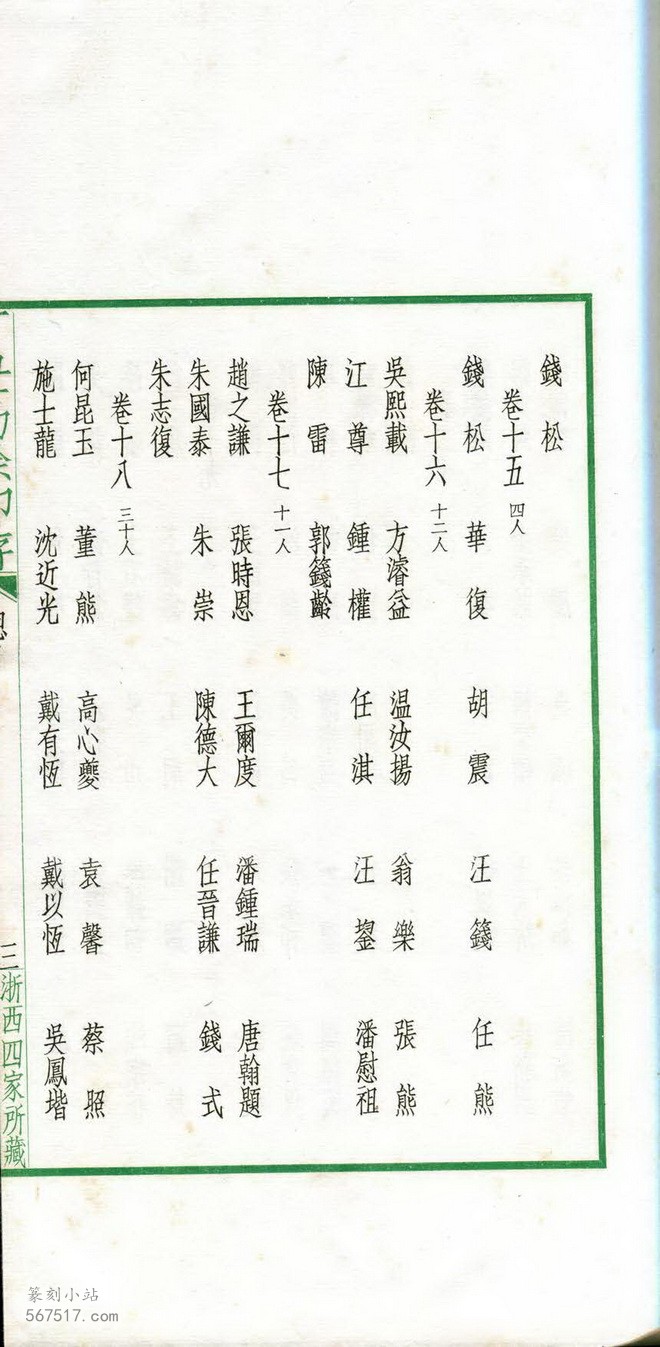 錢松
卷十五 四人
錢松 華復 胡震 汪籛 任熊
卷十六 十二人
吳熙載 方濬益 温汝揚 翁樂 張熊
江尊 鍾權 任淇 汪鋆 潘慰祖
陳雷 郭籛齡
卷十七 十一人
趙之謙 張時恩 王爾度 潘鍾瑞 唐翰題
朱國泰 朱崇 陳德大 任晉謙 錢式
朱志復
卷十八 三十人
何昆玉 董熊 高心夔 袁馨 蔡照
施士龍 沈近光 戴有恆 戴以恆 吳鳳堦
三 浙西四家所藏
篆刻小站
567517.com